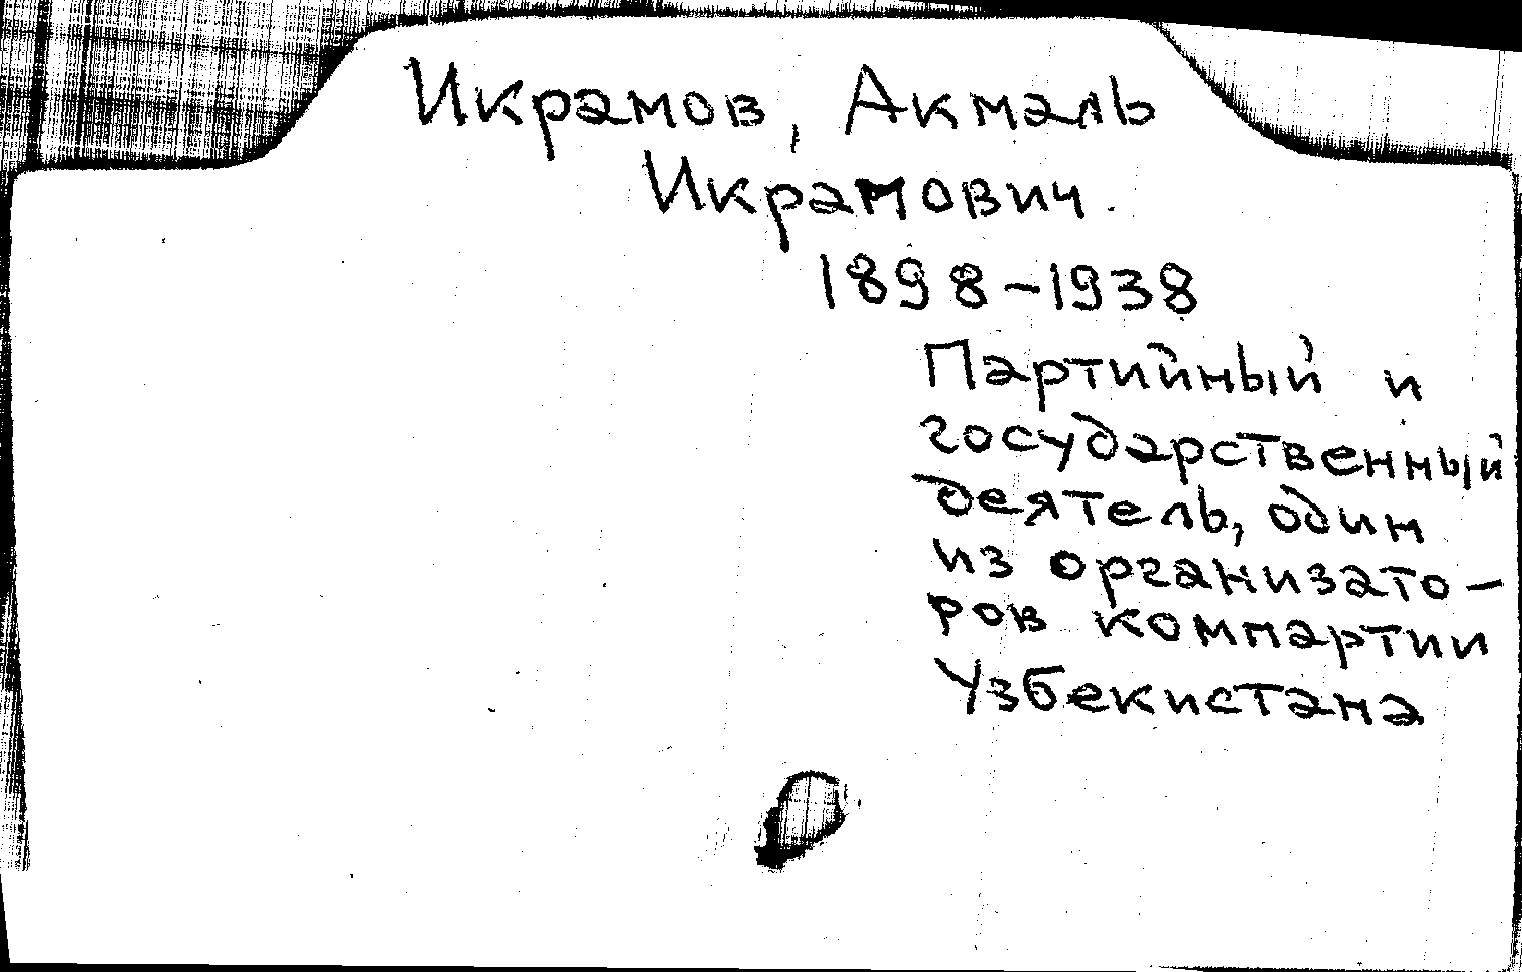 Икрамов, Акмаль
Икрамович.
1898-1938
Партийный и
государственный
деятель, один
из организато-
ров компартии
Узбекистана